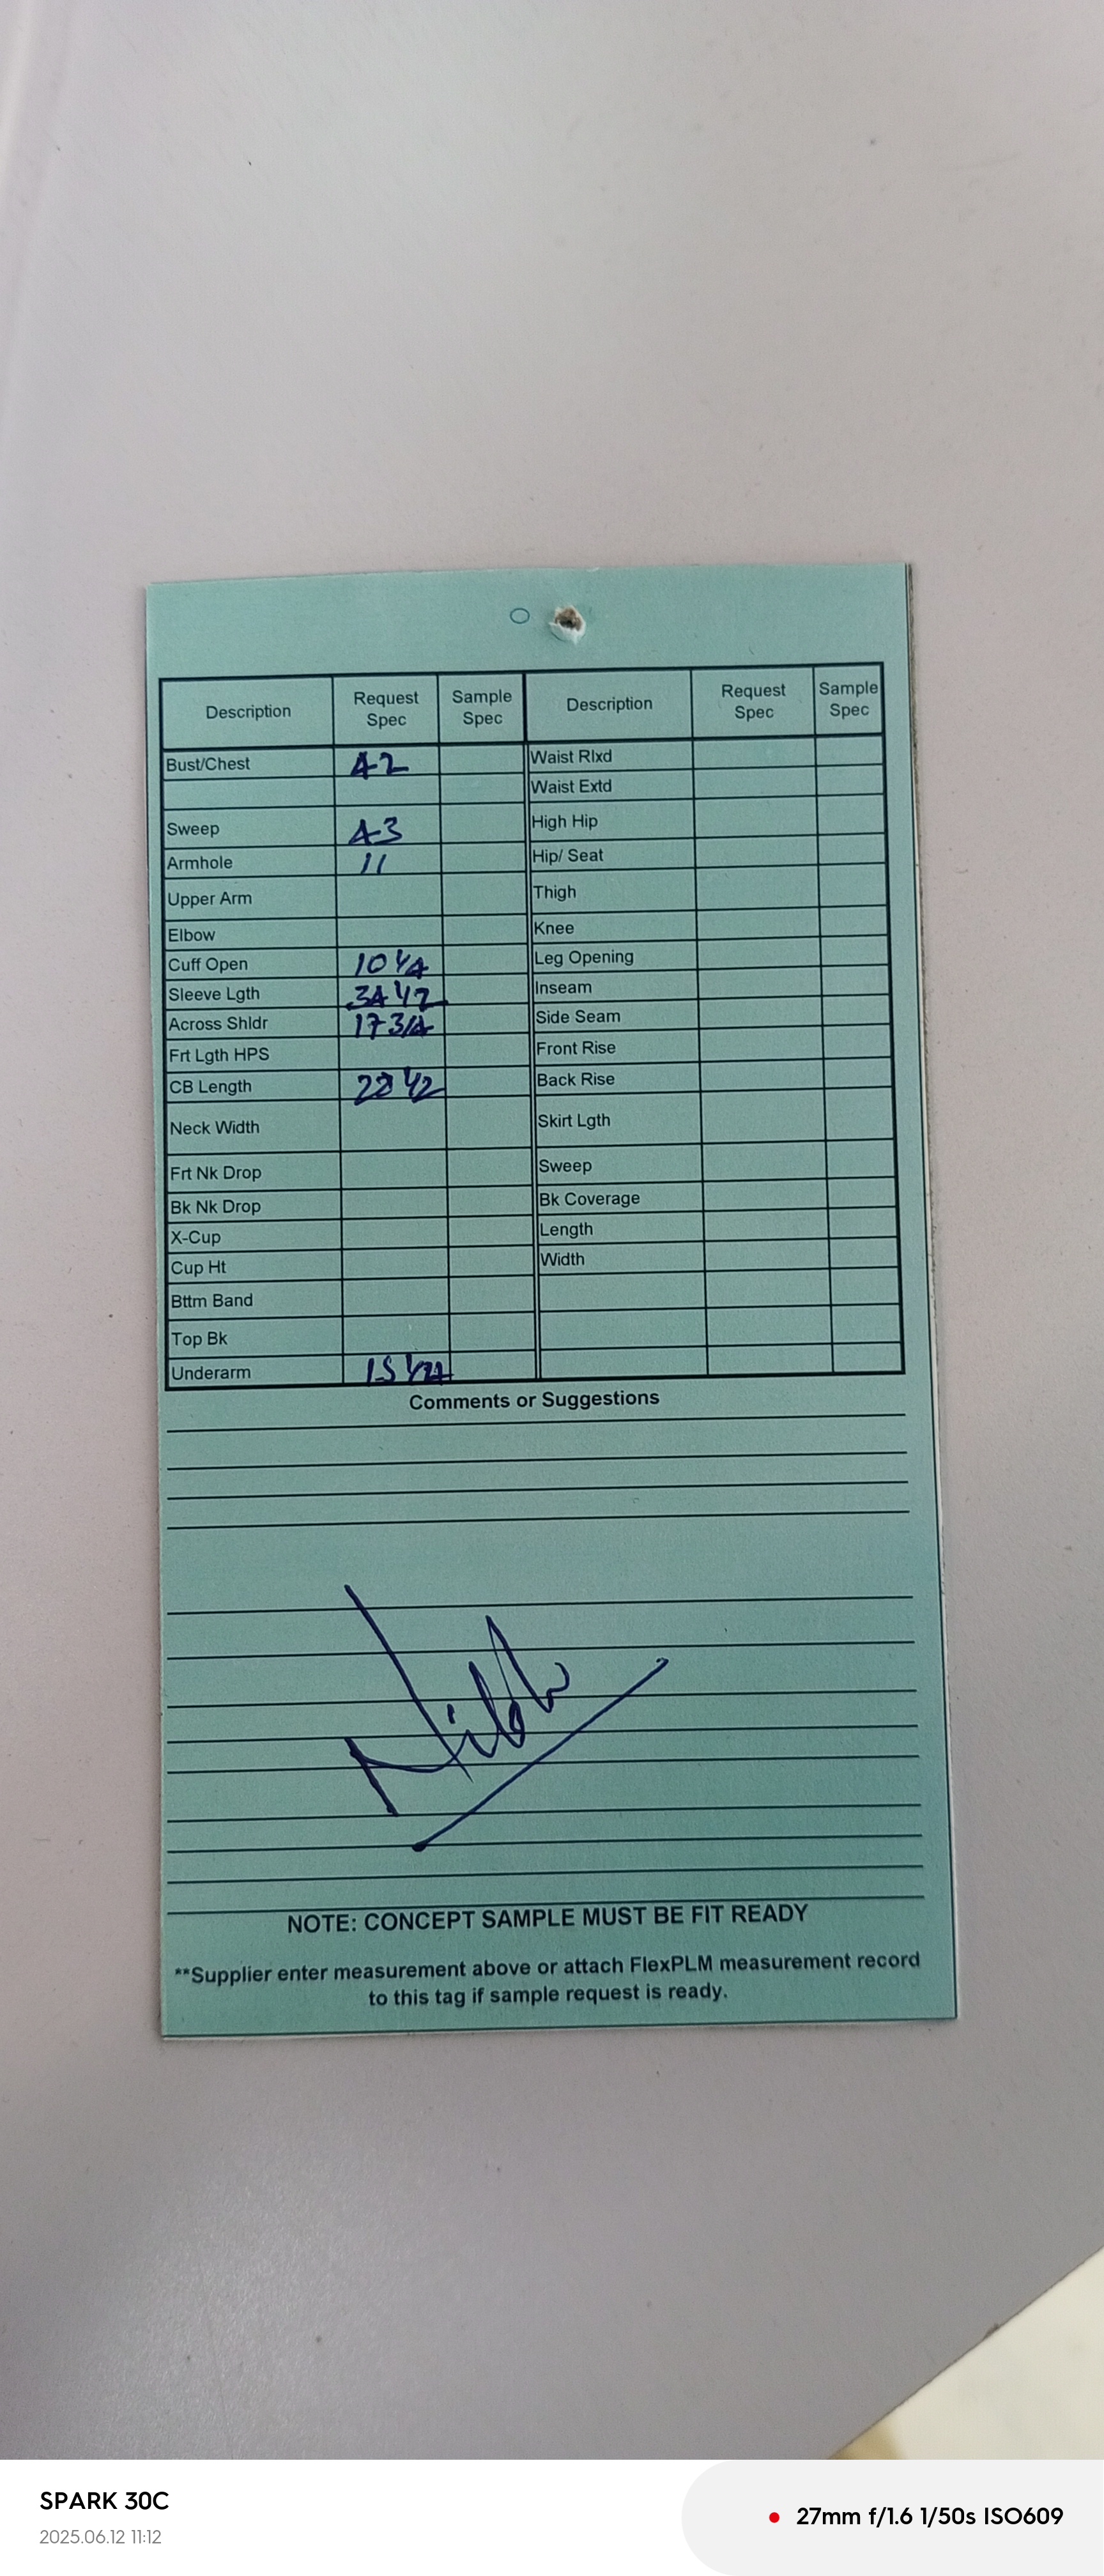 Description Request Spec Sample Spec Description Request Spec Sample Spec
Bust/Chest 42 Waist Rlxd
Waist Extd
Sweep 43 High Hip
Armhole 11 Hip/ Seat
Upper Arm Thigh
Elbow Knee
Cuff Open 10 1/4 Leg Opening
Sleeve Lgth 34 1/2 Inseam
Across Shldr 17 3/4 Side Seam
Frt Lgth HPS Front Rise
CB Length 1/2 Back Rise
Neck Width Skirt Lgth
Frt Nk Drop Sweep
Bk Nk Drop Bk Coverage
X-Cup Length
Cup Ht Width
Bttm Band
Top Bk
Underarm 15
Comments or Suggestions
NOTE: CONCEPT SAMPLE MUST BE FIT READY
**Supplier enter measurement above or attach FlexPLM measurement record
to this tag if sample request is ready.
SPARK 30C
2025.06.12 11:12
27mm f/1.6 1/50s ISO609